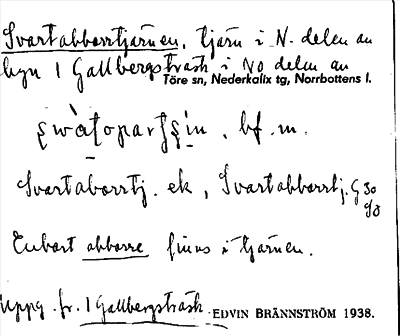 Svartabborrtjärnen, tjärn i N. delen av
byn 1 Gallbergsträsk i NO delen av
Töre sn, Nederkalix tg, Norrbottens l.
bf. m.
Svartaborrtj. ek, Svartabborrtj. G 30
Enbart abborre finns i tjärnen.
Uppg. fr. 1 Gallbergsträsk. EDVIN BRÄNNSTRÖM 1938.